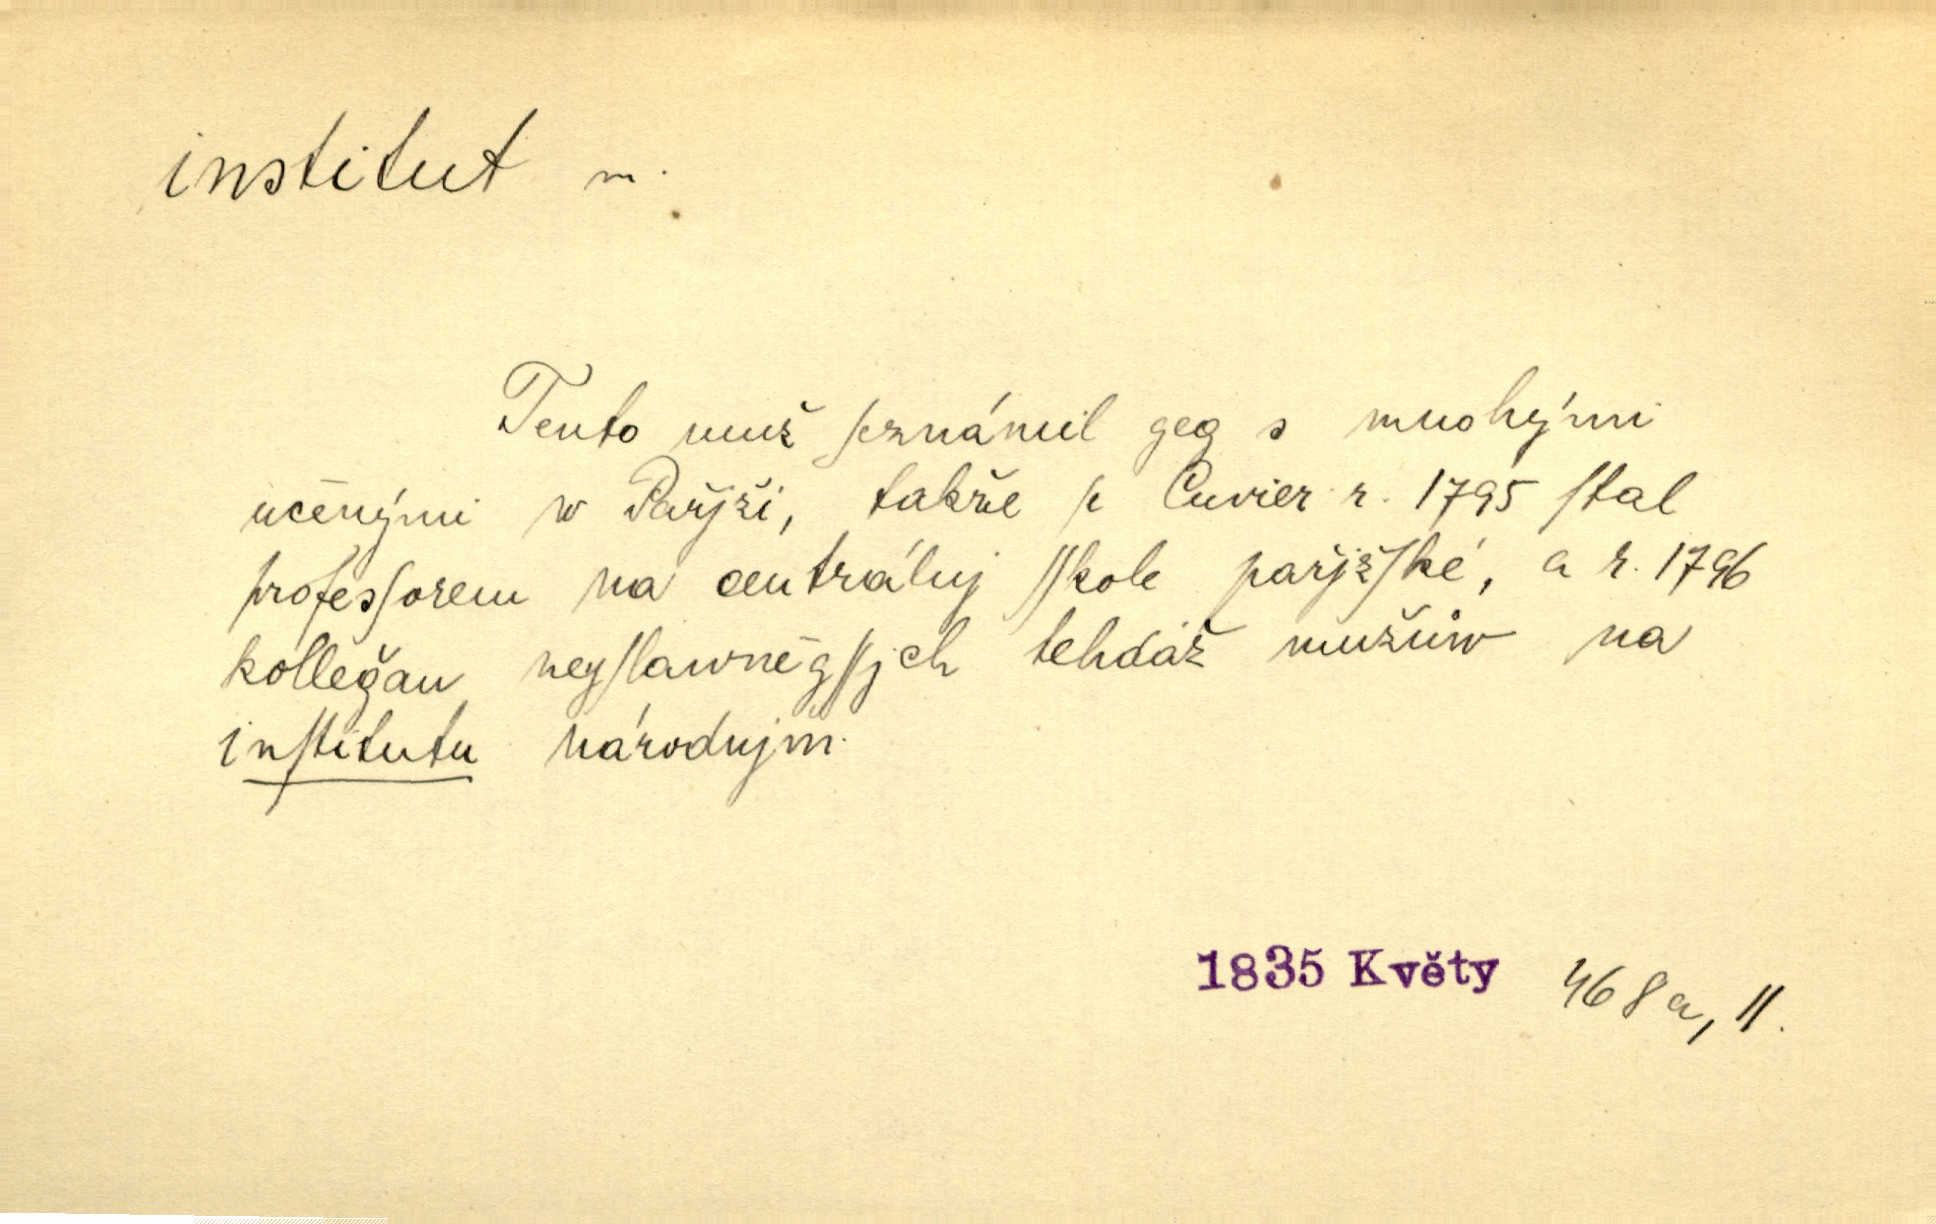 institut m.
Tento muž ſeznámil geg s mnohými
učenými w Pařjži, takže ſe Cuvier r. 1795 ſtal
profesſorem na centrálnj ſſkole pařjžſké, a r. 1796
kollegǎu neyſlawněgſſjch tehdáž mužůw na
inſtitutu národnjm.
1835 Květy 468a, II.